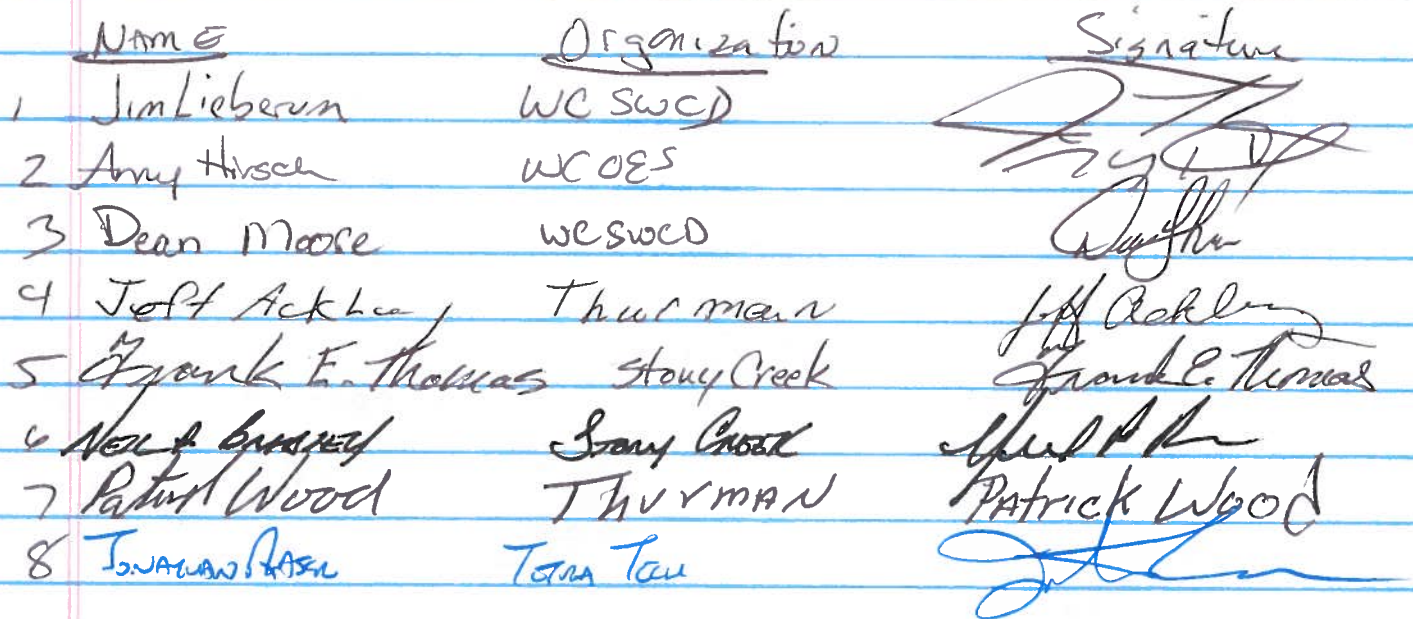 Name Organization Signature
1 Jim Lieberum WCSWCD
2 Amy Hirsch WCOES
3 Dean Moore WCSWCD
4 Jeff Ackley Thurman Jeff Ackley
5 Frank E. Thomas Stony Creek Frank E. Thomas
6 Stony Creek
7 Patrick Wood Thurman Patrick Wood
8 Tetra Tech